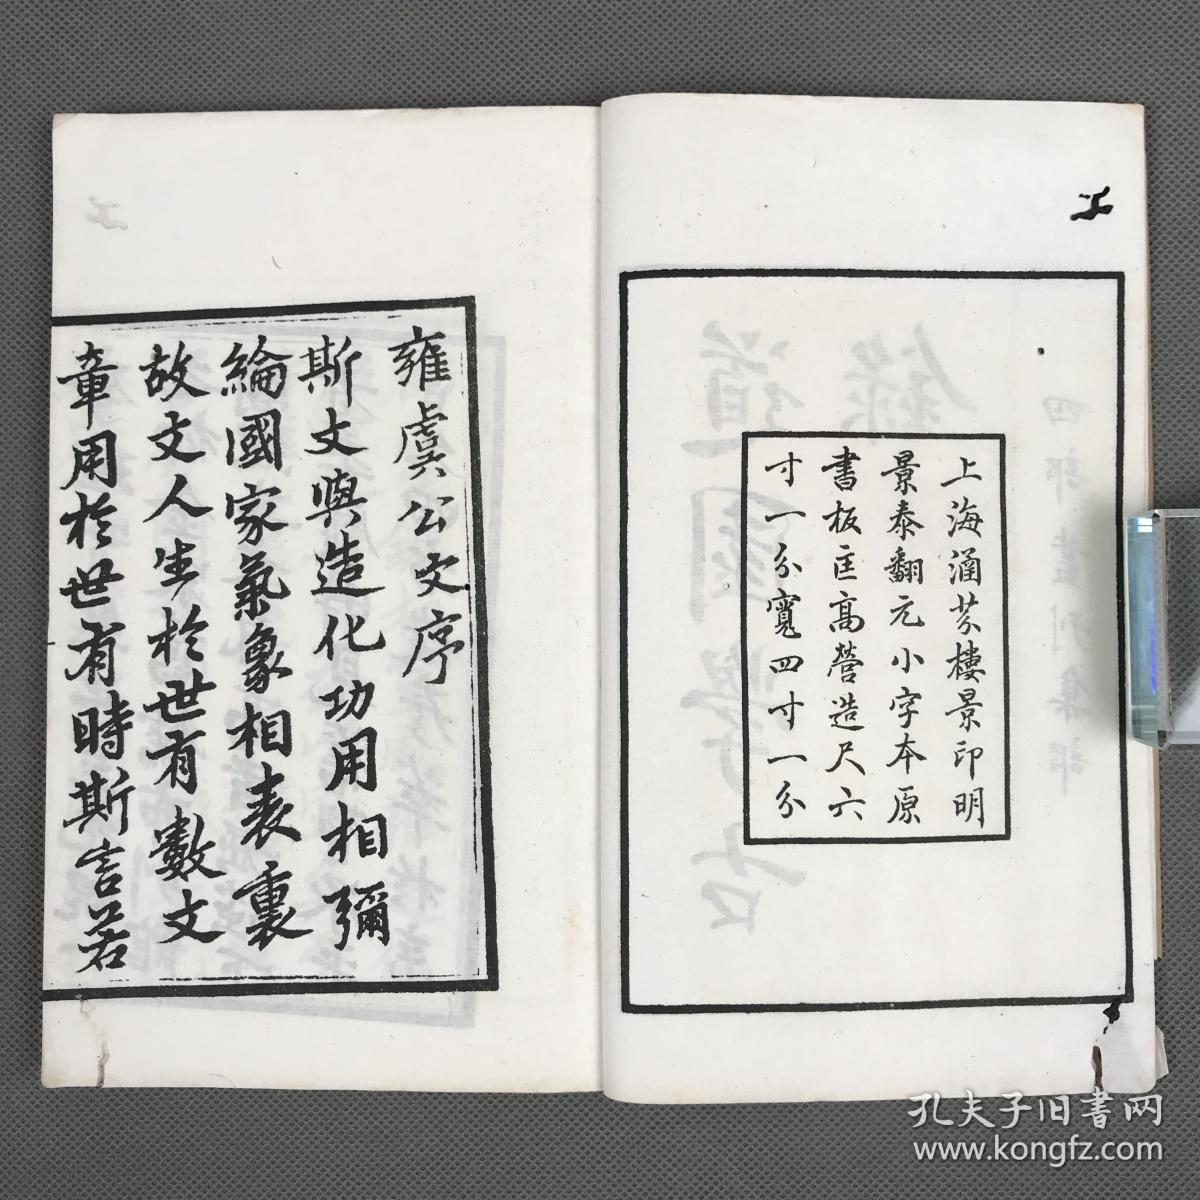 上海涵芬樓景印明
景泰翻元小字本原
書板匡高營造尺六
寸一分寬四寸一分
雍虞公文序
斯文與造化功用相彌
綸國家氣象相表裏
故文人生於世有數文
章用於世有時斯言若
孔夫子旧书网
www.kongfz.com